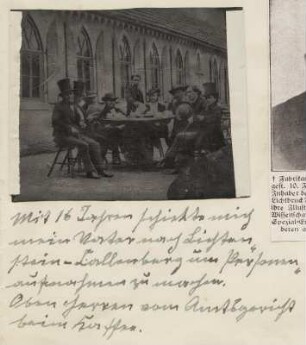 Mit 16 Jahren schickte mich
mein Vater nach Lichten
stein-Callenberg um Personen
aufnahmen zu machen.
Oben Herren vom Amtsgericht
beim Kaffee.
† Fabrika
gest. 10. J
Inhaber de
Lichtdruck
Wissenscha
Spezial-
beten a